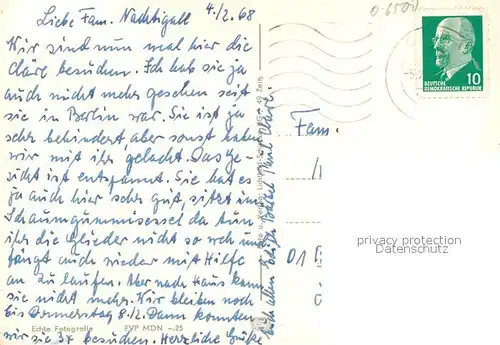 4./2. 68
Liebe Fam. Nachtigall
Wir sind nun mal hier die
Cläre besuchen. Ich hab sie ja
auch nicht mehr gesehen seit
sie in Berlin war. Sie ist ja
sehr behindert aber sonst haben
wir mit ihr gelacht. Das Ge-
sicht ist entspannt. Sie hat es
ja auch hier sehr gut, sitzt im
Schaumgummisessel da tun
ihr die Glieder nicht so weh und
fängt auch wieder mit Hilfe
an zu laufen. Aber nach Haus kann
sie nicht mehr. Wir bleiben noch
bis Donnerstag 8./2. Dann konnten
wir sie 3x besuchen. Herzliche Grüße
Echte Fotografie EVP MDN -.25
Fam.
DEUTSCHE
DEMOKRATISCHE REPUBLIK
10
privacy protection
Datenschutz